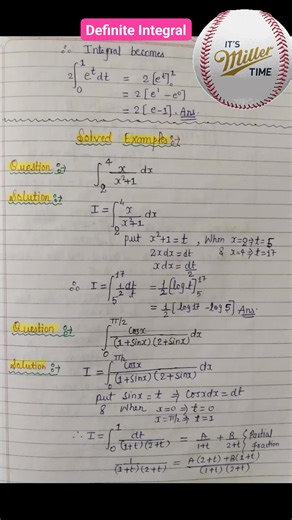 Definite Integral
IT'S
Miller
TIME
∴ Integral becomes
2∫₀¹ eᵗ dt = 2[eᵗ]₀¹
= 2[e¹ - e⁰]
= 2[e-1]. Ans.
Solved Examples:-
Question:- ∫₂⁴ x/(x²+1) dx
Solution:-
I = ∫₂⁴ x/(x²+1) dx
put x²+1 = t, When x=2⇒t=5
2xdx = dt & x=4⇒t=17
xdx = dt/2
∴ I = ∫₅¹⁷ 1/2 dt/t = 1/2 [log t]₅¹⁷
= 1/2 [log 17 - log 5] Ans.
Question:- ∫₀^π/2 cosx/((1+sinx)(2+sinx)) dx
Solution:- I = ∫₀^π/2 cosx/((1+sinx)(2+sinx)) dx
put sinx = t ⇒ cosxdx = dt
& When x=0 ⇒ t=0
x=π/2 ⇒ t=1
∴ I = ∫₀¹ dt/((1+t)(2+t)) = A/(1+t) + B/(2+t) { Partial fraction
1/((1+t)(2+t)) = (A(2+t)+B(1+t))/((1+t)(2+t))